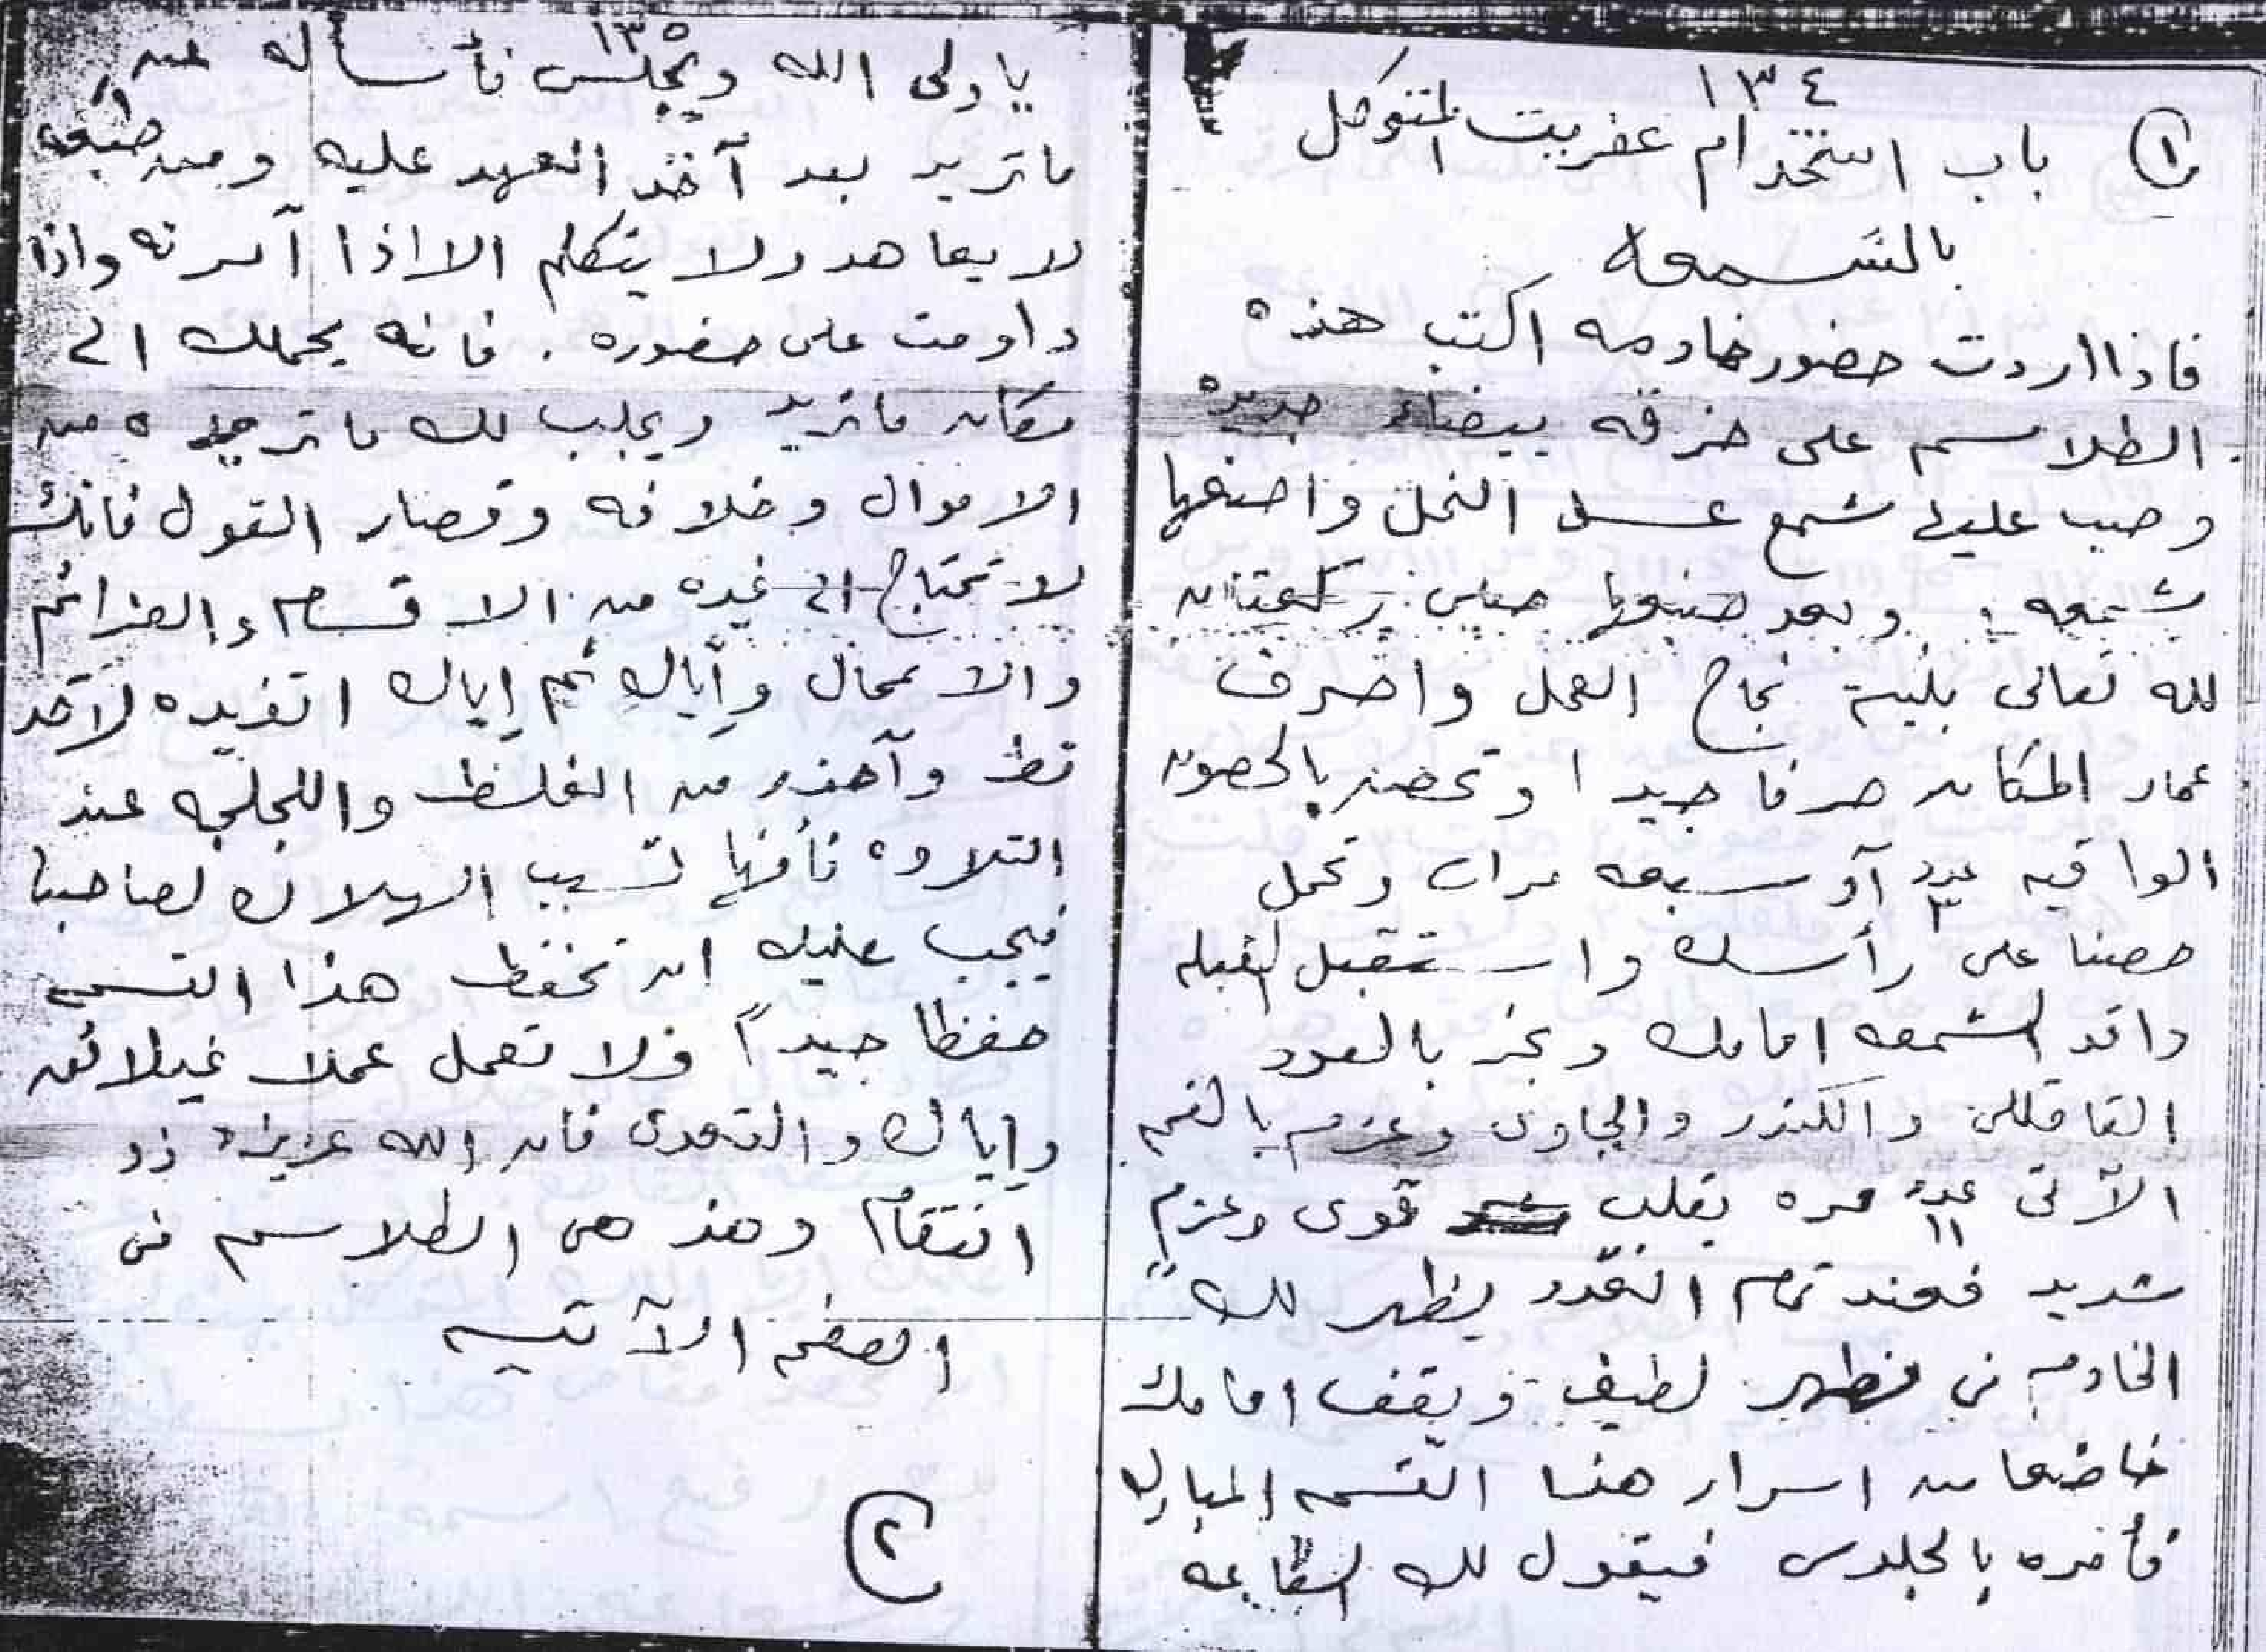 ١٣٤
١ باب استخدام عفريت المتوكل
بالشمعه
فاذا اردت حضور خادمه اكتب هذه
الطلاسم على خرقه بيضاء جديده
وصب عليها شمع عسل النحل واصنعها
شمعه . وبعد صنعها صلى ركعتان
لله تعالى بنية نجاح العمل واصرف
عمار المكان صرفا جيدا وتحصن بالحصون
الواقيه عدد ٣ آو سبعه مرات وتحمل
حصنا على رأسك واستقبل القبله
واقد الشمعه امامك وبخر بالعود
القاقللى والكندر والجاوى وعزم بالقسم
الآتى عدد ١١ مره بقلب قوى وعزم
شديد فعند تمام العدد يظهر لك
الخادم فى مظهر لطيف ويقف امامك
خاضعا من اسرار هذا القسم المبارك
فأمره بالجلوس فيقول لك السقا عه
١٣٥
ياولى الله ويجلس فأسأله عن
ماتريد بعد آخذ العهد عليه ومن طبعه
لا يعاهد ولا يتكلم الا اذا آمرته واذا
داومت على حضوره . فانه يحملك الى
مكان ماتريد ويجلب لك ماتريده من
الاموال وخلافه وقصار القول فانك
لا تحتاج الى غيره من الاقسام والعزائم
والاعمال وآياك ثم إياك اتفيده لآحد
قط وآحذر من الغلط واللجلجه عند
التلاوه فأنها تسبب الهلاك لصاحبها
فيجب عليك ان تحفظ هذا القسم
حفظا جيداً ولا تعمل عملا غيرلائق
وإياك والتعدى فان الله عزيز ذو
انتقام وهذ هى الطلاسم فى
الصفحه الآتيه
٢